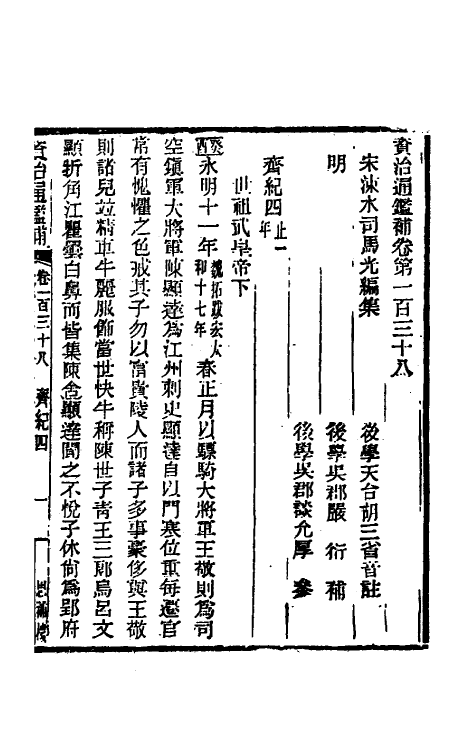 資治通鑑補卷第一百三十八
宋涑水司馬光編集
後學天台胡三省音註
明
後學吳郡嚴衍補
後學吳郡談允厚參
齊紀四止一年
世祖武皇帝下
癸酉永明十一年魏拓跋宏太和十七年春正月以驃騎大將軍王敬則為司
空鎮軍大將軍陳顯達為江州刺史顯達自以門寒位重每遷官
常有愧懼之色戒其子勿以富貴陵人而諸子多事豪侈與王敬
則諸兒竝精車牛麗服飾當世快牛稱陳世子青王三郎烏呂文
顯折角江瞿曇白鼻而皆集陳舍顯達聞之不悅子休尚為郢府
資治通鑑補
卷一百三十八
齊紀四
一
思補樓